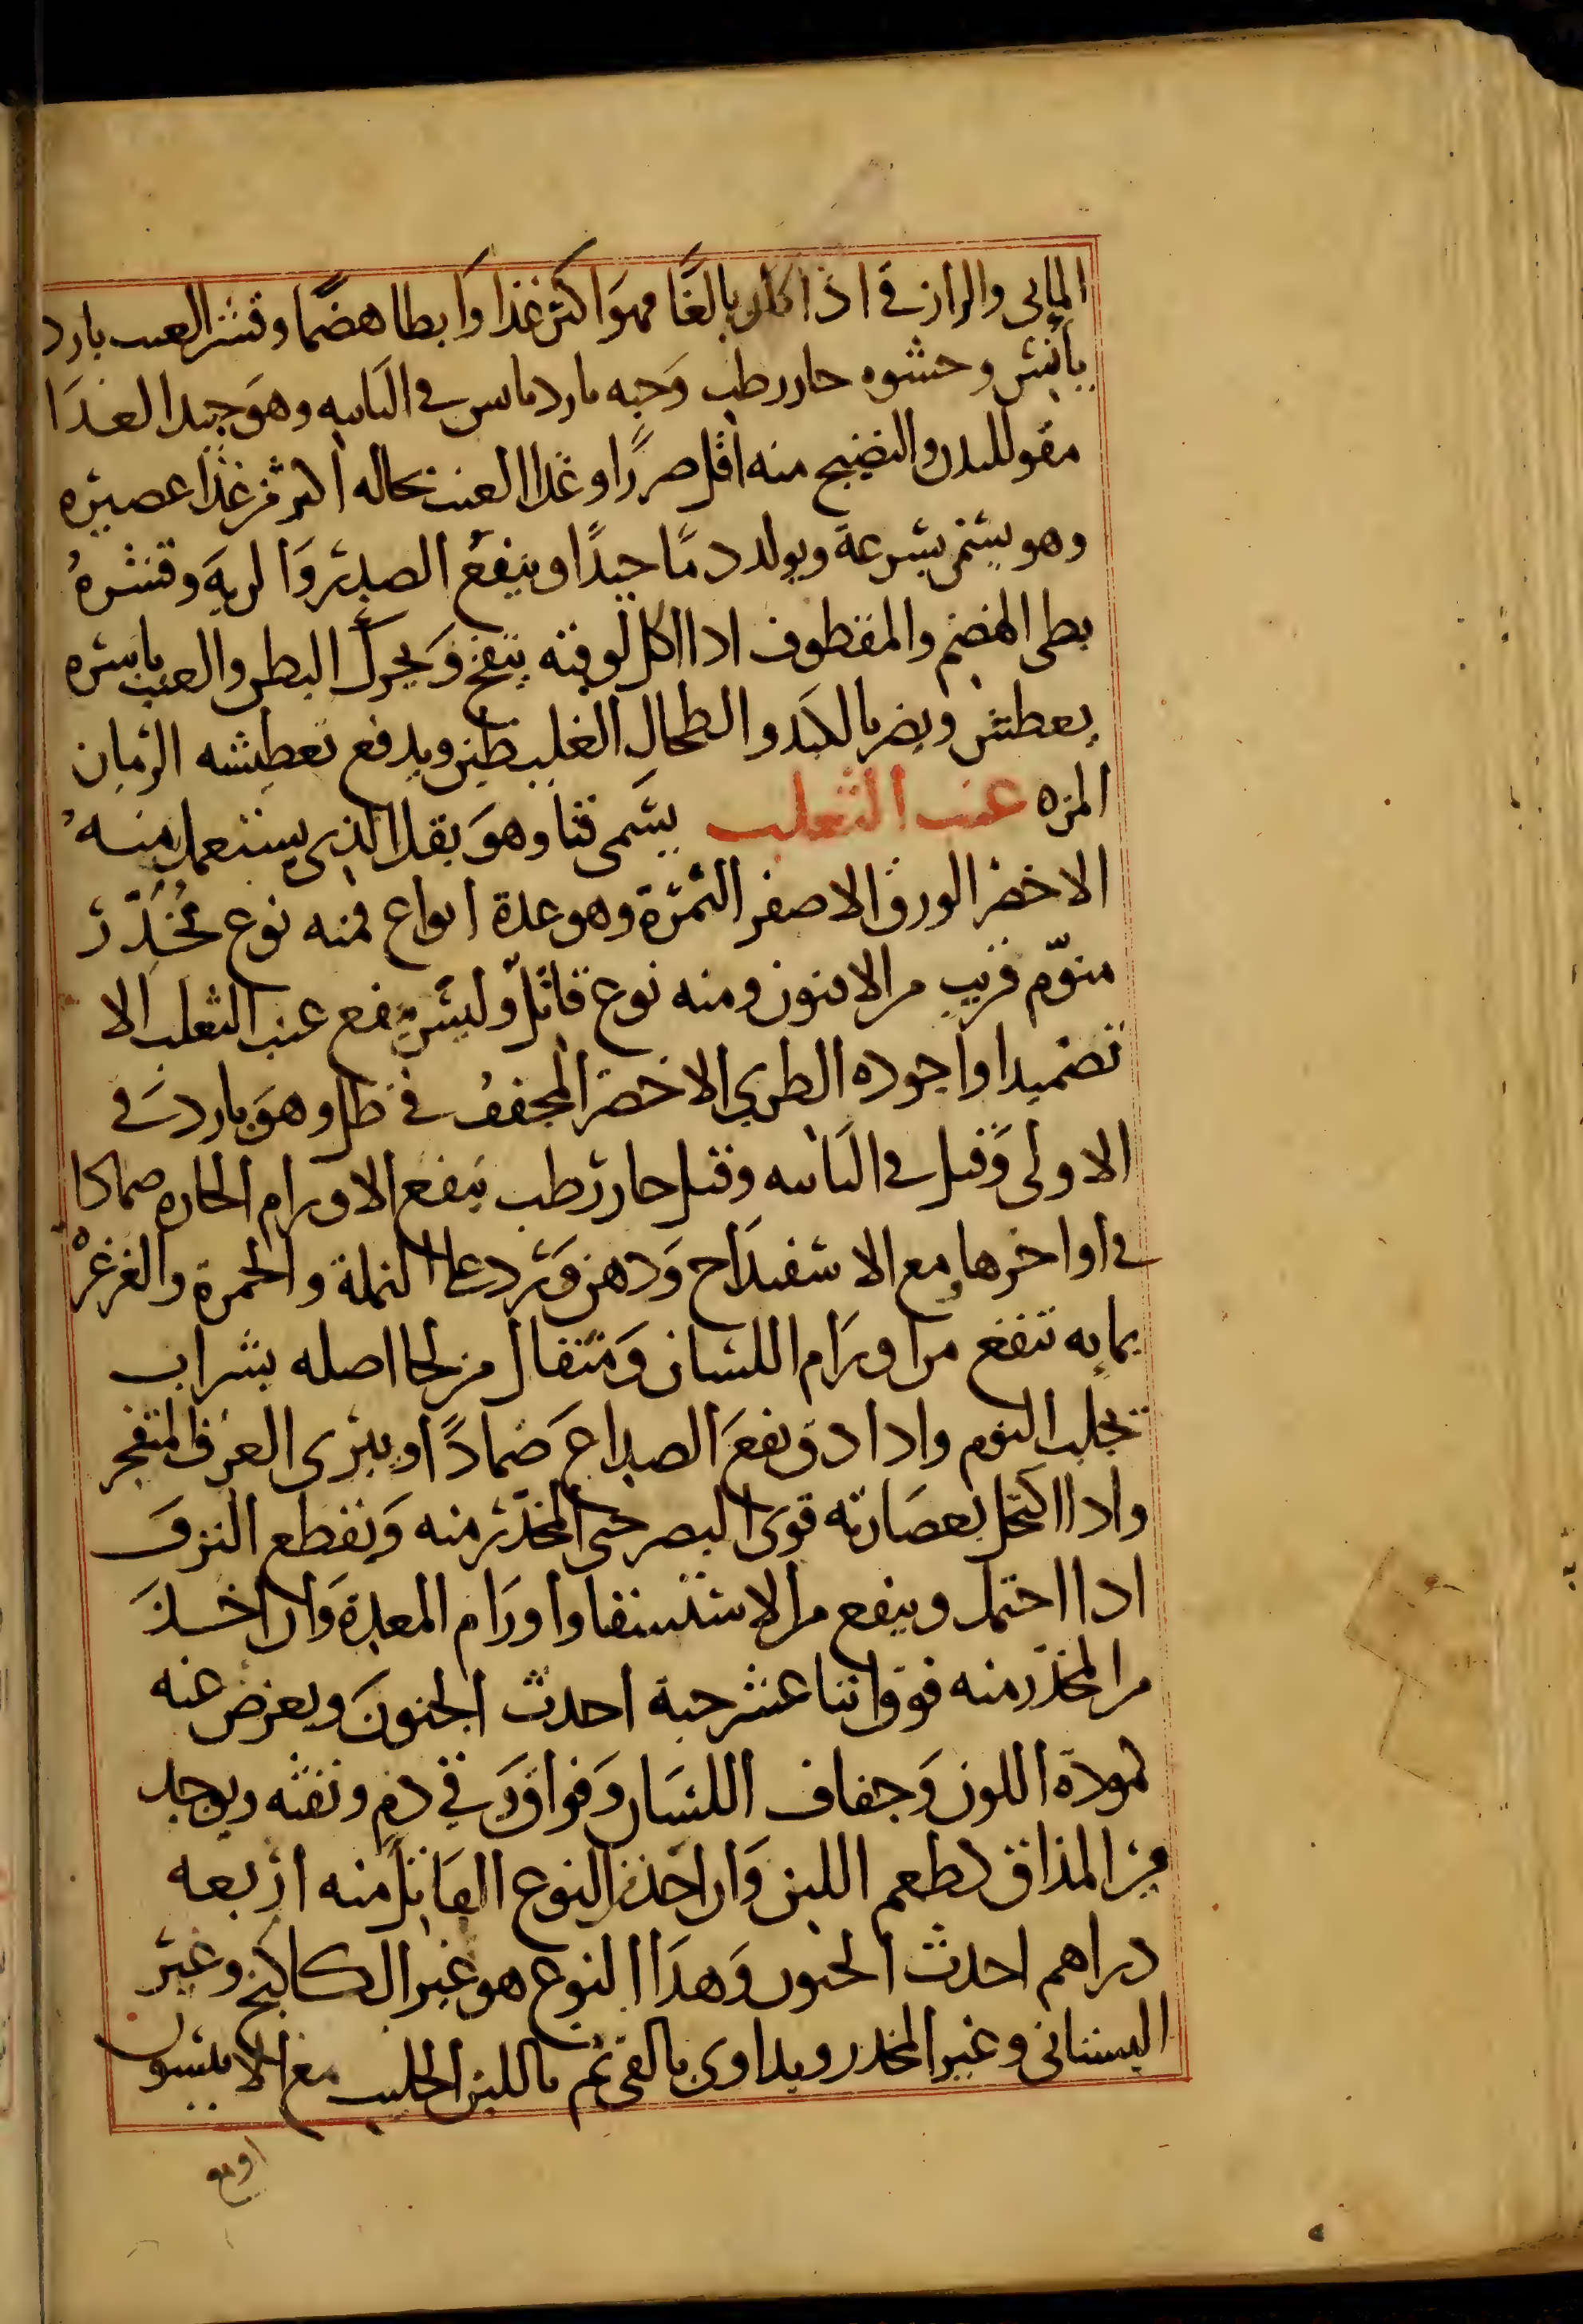 المابى والرازقى اذا كان بالغًا فهو اكثر غذا وابطا هضمًا وقشر العنب بارد
يابس وحشوه حار رطب وحبه بارد يابس فى الثانيه وهو جيد الغذا
مقو للبدن والنضيج منه اقل ضررًا وغذا العنب بحاله اكثر من غذا عصيره
وهو يسمن بسرعة ويولد دمًا جيدًا وينفع الصدر والريه وقشره
بطى الهضم والمقطوف اذا اكل لوقته ينفخ ويحرك البطن والعنب باسره
يعطش ويضر بالكبد والطحال الغليظين ويدفع تعطيشه الرمان
المزه عنب الثعلب يسمى فنا وهو بقل الذى يستعمل منه
الاخضر الورق الاصفر الثمرة وهو عدة انواع فمنه نوع مُخَدِّر
منوّم قريب من الافيون ومنه نوع قاتل وليس ينفع عنب الثعلب الا
تضميدا واجوده الطرى الاخضر المجفف فى ظل وهو بارد فى
الاولى وقيل فى الثانيه وقيل حار رطب ينفع الاورام الحاره ضمادا
فى اواخرها مع الاسفيداج ودهن ورد على النملة والحمرة والغرغره
بمايه تنفع من اورام اللسان ومثقال من لحا اصله بشراب
يجلب النوم واذا دق نفع الصداع ضمادًا ويبرى العرق المتفجر
واذا اكتحل بعصارته قوى البصر حتى المخدّر منه ويقطع النزف
اذا احتمل وينفع من الاستسقا واورام المعدة وان اخذ
من المخدّر منه فوق اثنا عشر حبة احدث الجنون ويعرض عنه
لمودة اللون وجفاف اللسان وفواق وقى دم ونفثه ويوجد
من المذاق لطعم اللبن وان اخذ من النوع القاتل منه اربعه
دراهم احدث الجنون وهذا النوع هو غير الكاكنج وغير
البستانى وغير المخدر ويداوى بالقى ثم باللبن الحليب مع الانيسون
اويع